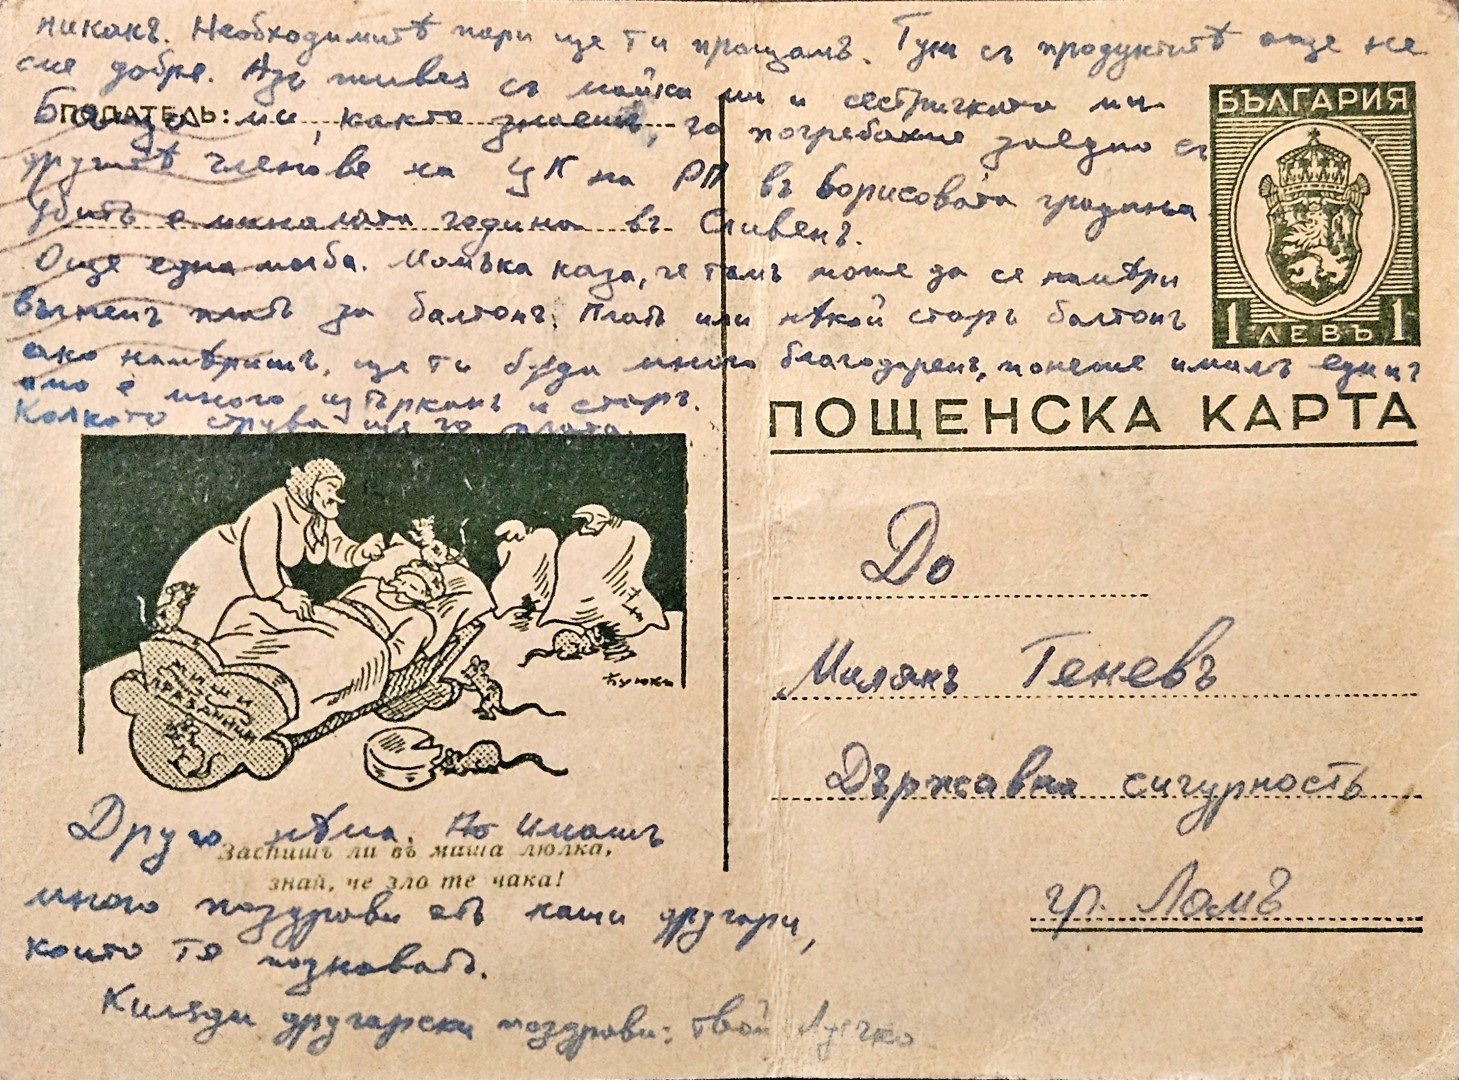 никакъ. Необходимитѣ пари ще ти пращамъ. Тук съ продуктитѣ още не
сме добре. Азъ живея съ майка ми и сестричката ми
ПОДАТЕЛЬ:
ми, както знаешъ, го погребахме заедно съ
другитѣ членове на ЦК на РП въ Борисовата градина
Убитъ е миналата година въ Сливенъ.
Още една молба. Момъка каза, че тамъ може да се намѣри
вълненъ платъ за балтонъ. Платъ или нѣкой старъ балтонъ
ако намѣришъ, ще ти бѫда много благодаренъ, понеже имамъ единъ
ама е много изтърканъ и старъ.
Колкото струва ще го платя.
БЪЛГАРИЯ
1 ЛЕВЪ 1
ПОЩЕНСКА КАРТА
МИШИ ПРАЗДНИЦИ
До
Миланъ Геневъ
Държавна сигурность
гр. Ломъ
Друго нѣма. По имашъ
Заспишъ ли въ миша люлка,
знай, че зло те чака!
много поздрави отъ наши другари,
които те познаватъ.
Хиляди другарски поздрави: твой Лучко